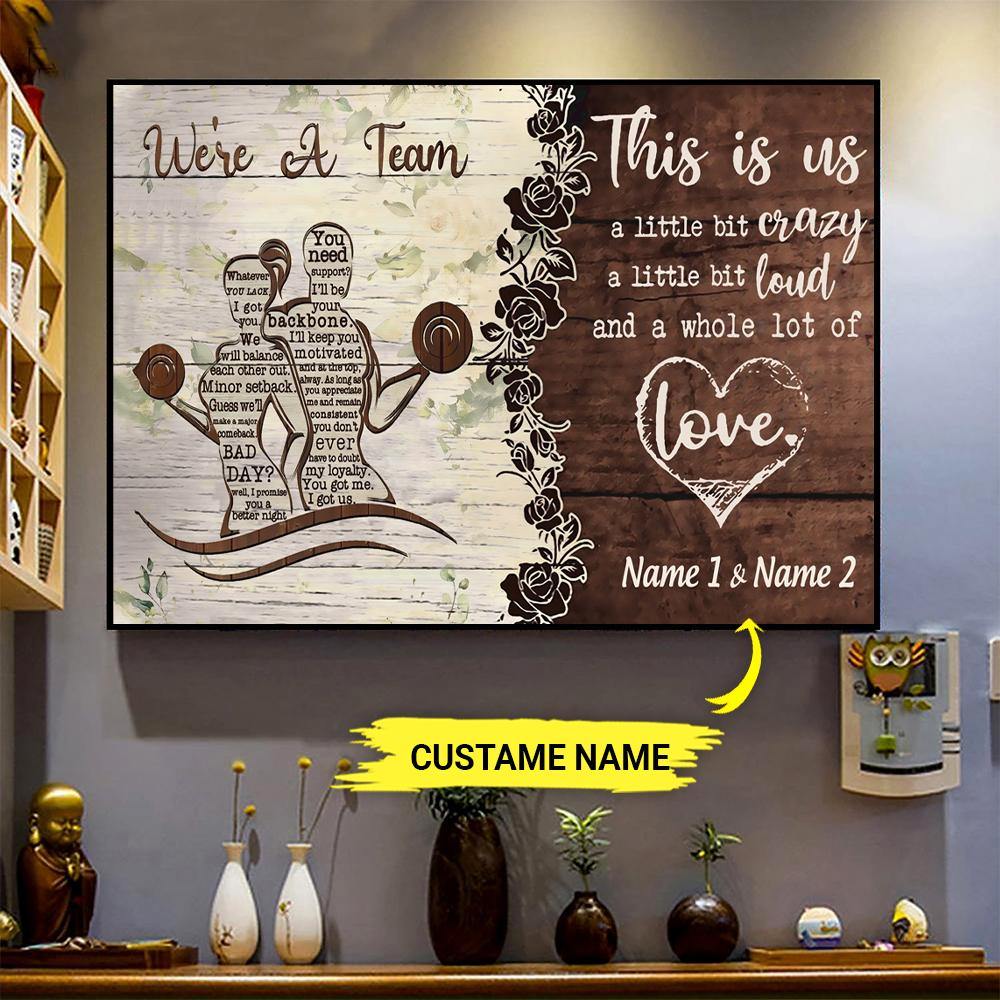 We're A Team
Whatever
YOU LACK,
I got
you.
We
will balance
each other out.
Minor setback.
Guess we'll
make a major
comeback.
BAD
DAY?
well, I promise
you a
better night
You
need
support?
I'll be
your
backbone.
I'll keep you
motivated
and at the top,
alway. As long as
you appreciate
me and remain
consistent
you don't
ever
have to doubt
my loyalty.
You got me.
I got us.
This is us
a little bit crazy
a little bit loud
and a whole lot of
love.
Name 1 & Name 2
CUSTAME NAME